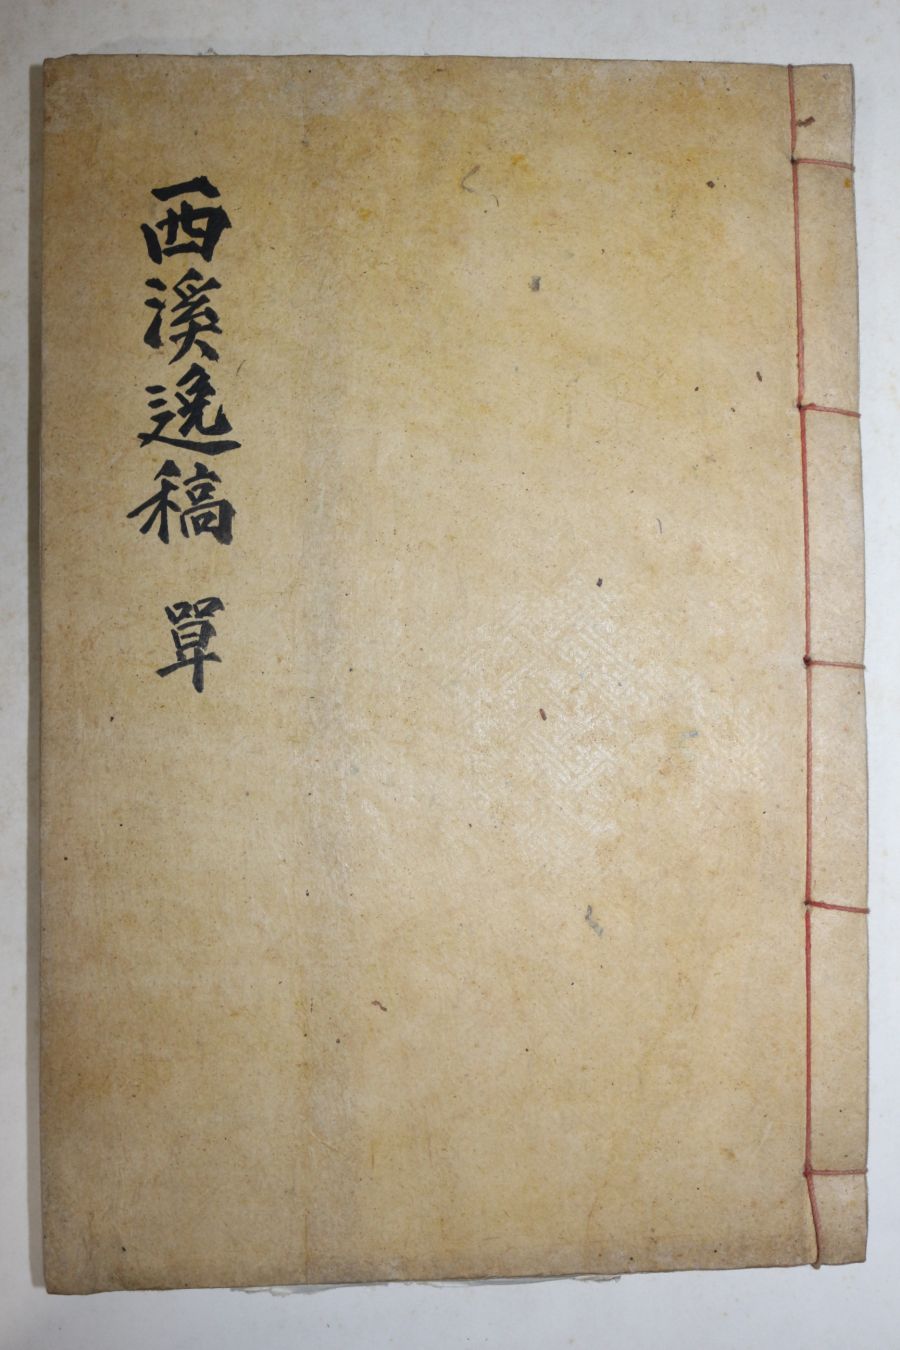 西溪逸稿 單